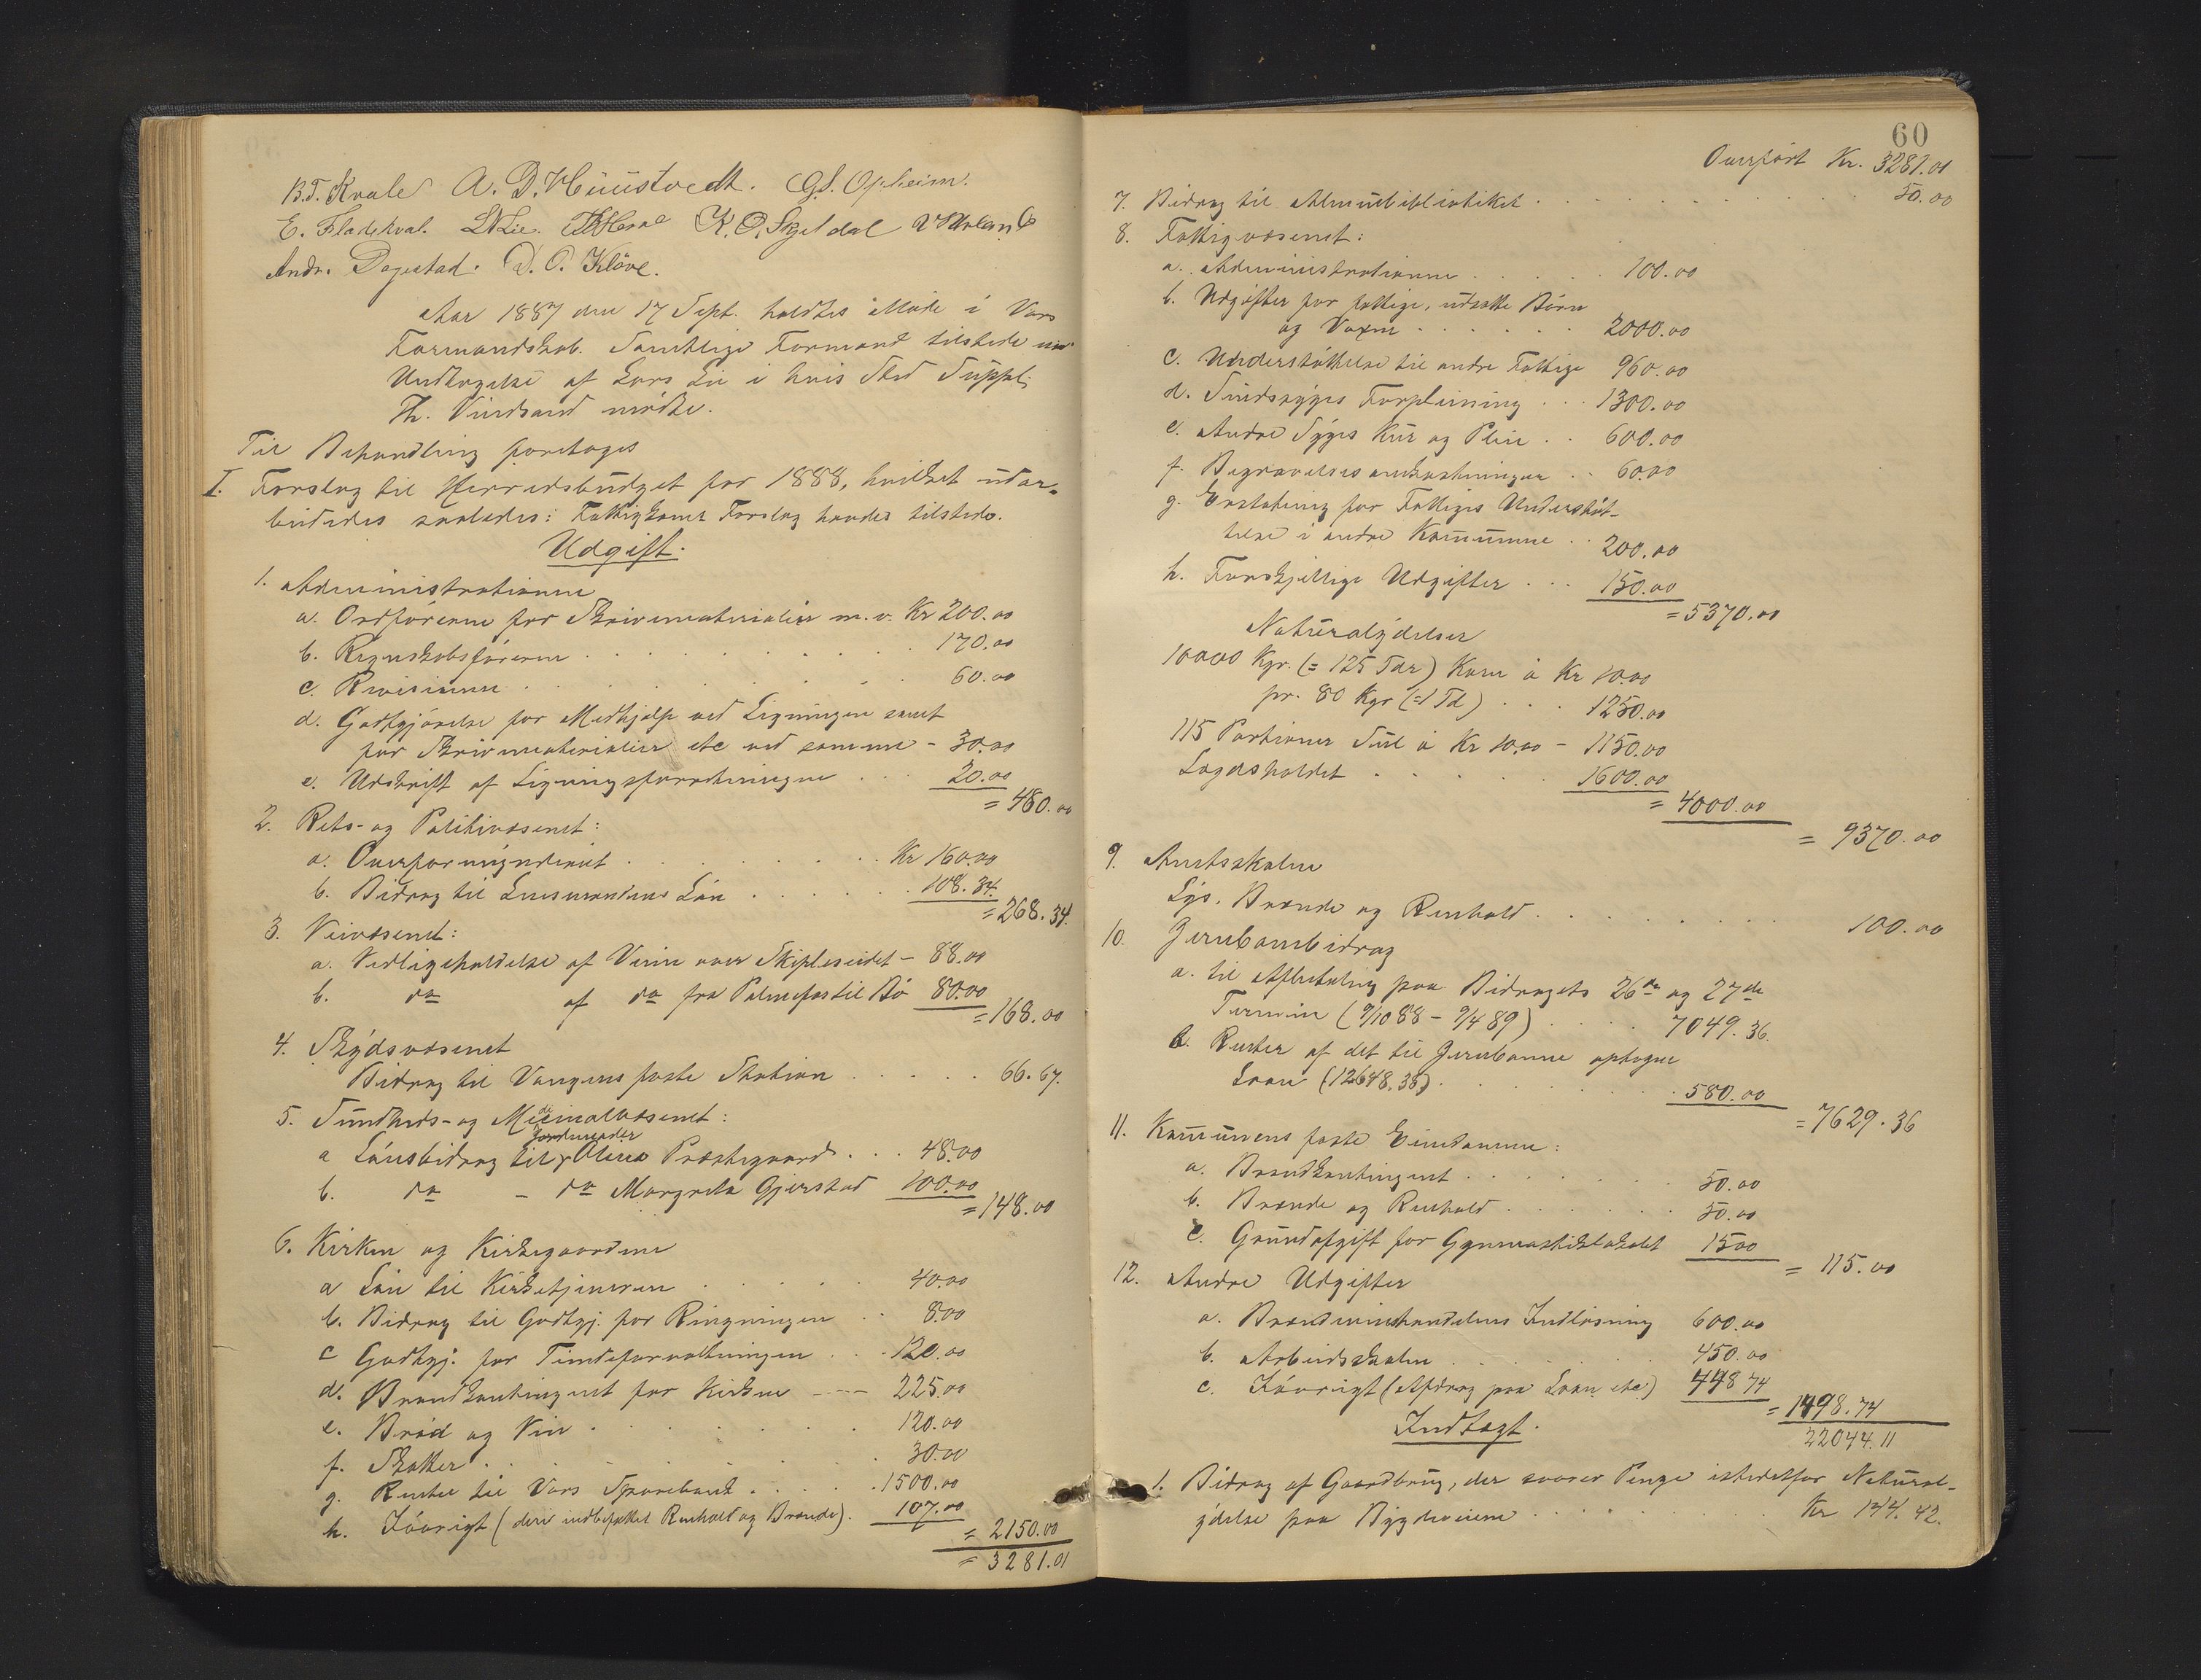 B.T. Kvale A. D. Huustvedt. G.S. Opheim.
E. Fladekval. LNLie. K. O. Skjeldal
Andr. Dagestad. D. O. Kløve.
Aar 1887 den 17 Sept. holdtes Møde i Vors
Formandskab. Samtlige Formænd tilstede med
Undtagelse af Lars Lie i hvis Sted Suppl.
Th. Vindsand mødte.
Til Behandling foretoges
I. Forslag til Herredsbudget for 1888, hvilket udar-
beidedes saaledes: Fattigkoms Forslag havdes tilstede.
Udgift.
1. Administrationen
a. Ordføreren for Skrivematerialier m. v. Kr 200.00
b. Regnskabsføreren 170.00
c. Revisionen 60.00
d. Godtgjørelse for Medhjælp ved Ligningen samt
for Skrivematerialier etc ved samme - 30.00
e. Udskrift af Ligningsforretningen 20.00
= 480.00
2. Rets- og Politivæsenet:
a. Overformynderiet Kr 160.00
b. Bidrag til Lensmandens Løn 108.34.
= 268.34.
3. Veivæsenet:
a. Vedligeholdelse af Veien over Skipleseidet - 88.00
b. do af do fra Palmefos til Bø 80.00
= 168.00
4. Skydsvæsenet
Bidrag til Vangens faste Station 66.67.
5. Sundheds- og Medicinalvæsenet:
a Lønsbidrag til Jordmoder Olina Præstegaard 48.00
b. do - do Margreta Gjerstad 100.00
= 148.00
6. Kirken og Kirkegaardene
a Løn til Kirketjeneren 40.00
b. Bidrag til Godtgj. for Ringningen 8.00
c Godtgj. for Tiendeforvaltningen 120.00
d. Brandkontingent for Kirken 225.00
e. Brød og Vin 120.00
f. Skatter 30.00
g. Renter til Vors Sparebank 1500.00
h. Iøvrigt (deri indbefattet Renhold og Brænde). 107.00
= 2150.00
= 3281.01
60
Overført Kr. 3281.01
7. Bidrag til Almuebibliotiket 50.00
8. Fattigvæsenet:
a. Administrationen 100.00
b. Udgifter for fattige, udsatte Børn
og Voxne 2000.00
c. Understøttelse til andre Fattige 960.00
d. Sindsyges Forpleining 1300.00
e. Andre Syges Kur og Pleie 600.00
f. Begravelsesomkostninger 60.00
g. Erstatning for Fattiges Understøt-
telse i andre Kommuner 200.00
h. Forskjellige Udgifter 150.00
= 5370.00
Naturalydelser
10000 Kgr. (= 125 Tdr) Korn à Kr 10.00
pr. 80 Kgr (=1 Td) 1250.00
115 Portioner Sul à Kr 10.00 - 1150.00
Lægdsholdet 1600.00
= 4000.00
= 9370.00
9. Amtsskolen
Lys, Brænde og Renhold 100.00
10. Jernbanebidrag
a. til Afbetaling paa Bidragets 26de og 27de
Termin (9/10 88 - 9/4 89) 7049.36.
b. Renter af det til Jernbanen optagne
Laan (12648.38) 580.00
= 7629.36
11. Kommunens faste Eiendomme:
a. Brandkontingent 50.00
b. Brænde og Renhold 50.00
c. Grundafgift for Gymnastiklokalet 15.00
= 115.00
12. Andre Udgifter
a. Brændevinshandelens Indløsning 600.00
b. Arbeidsskolen 450.00
c. Iøvrigt (Afdrag paa Laan etc) 448 74
= 1498.74
22044.11
Indtægt.
1. Bidrag af Gaardbrug, der svarer Penge istedetfor Natural-
ydelse paa Bygdeveiene Kr 144.42.